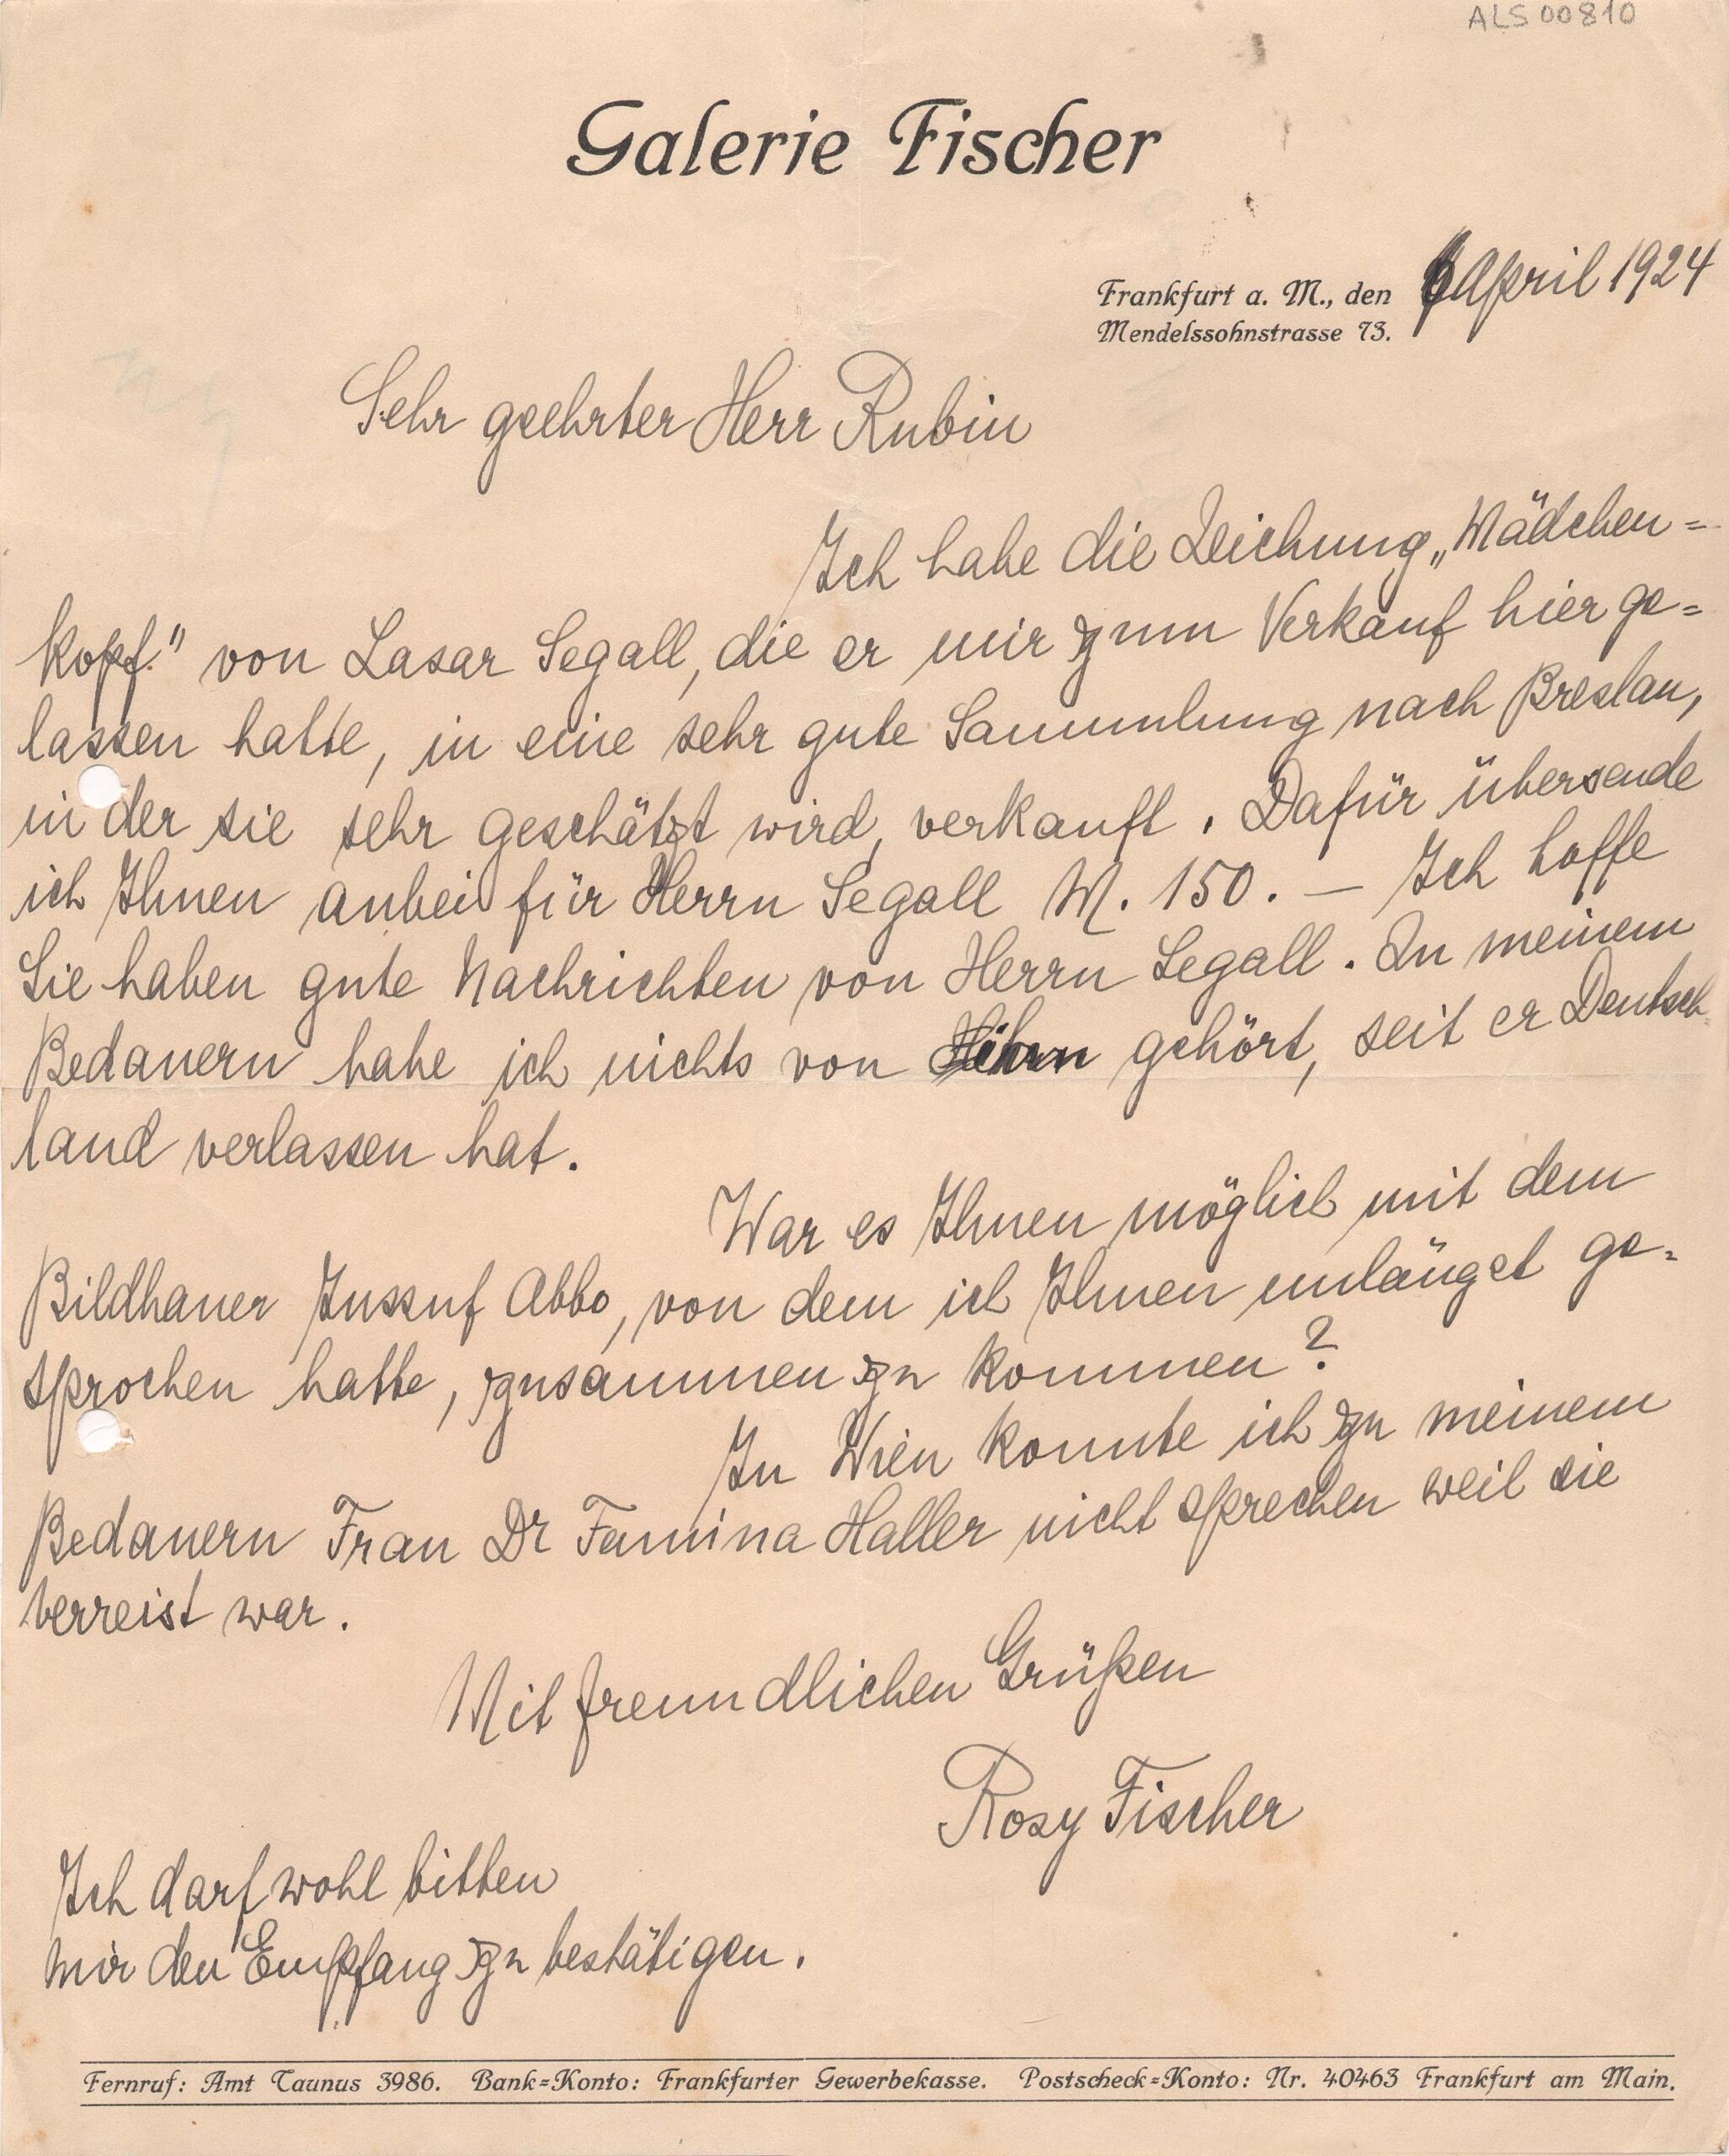 ALS 00810
Galerie Fischer
Frankfurt a. M., den 6 April 1924
Mendelssohnstrasse 73.
Sehr geehrter Herr Rubin
Ich habe die Zeichnung „Mädchen=
kopf." von Lasar Segall, die er mir zum Verkauf hier ge=
lassen hatte, in eine sehr gute Sammlung nach Breslau,
in der sie sehr geschätzt wird, verkauft. Dafür übersende
ich Ihnen anbei für Herrn Segall M. 150. — Ich hoffe
Sie haben gute Nachrichten von Herrn Segall. Zu meinem
Bedauern habe ich nichts von ihm gehört, seit er Deutsch-
land verlassen hat.
War es Ihnen möglich mit dem
Bildhauer Jussuf Abbo, von dem ich Ihnen unlängst ge=
sprochen hatte, zusammen zu kommen?
In Wien konnte ich zu meinem
Bedauern Frau Dr Famina Haller nicht sprechen weil sie
verreist war.
Mit freundlichen Grüßen
Rosy Fischer
Ich darf wohl bitten
mir den Empfang zu bestätigen.
Fernruf: Amt Taunus 3986. Bank=Konto: Frankfurter Gewerbekasse. Postscheck=Konto: Nr. 40463 Frankfurt am Main.